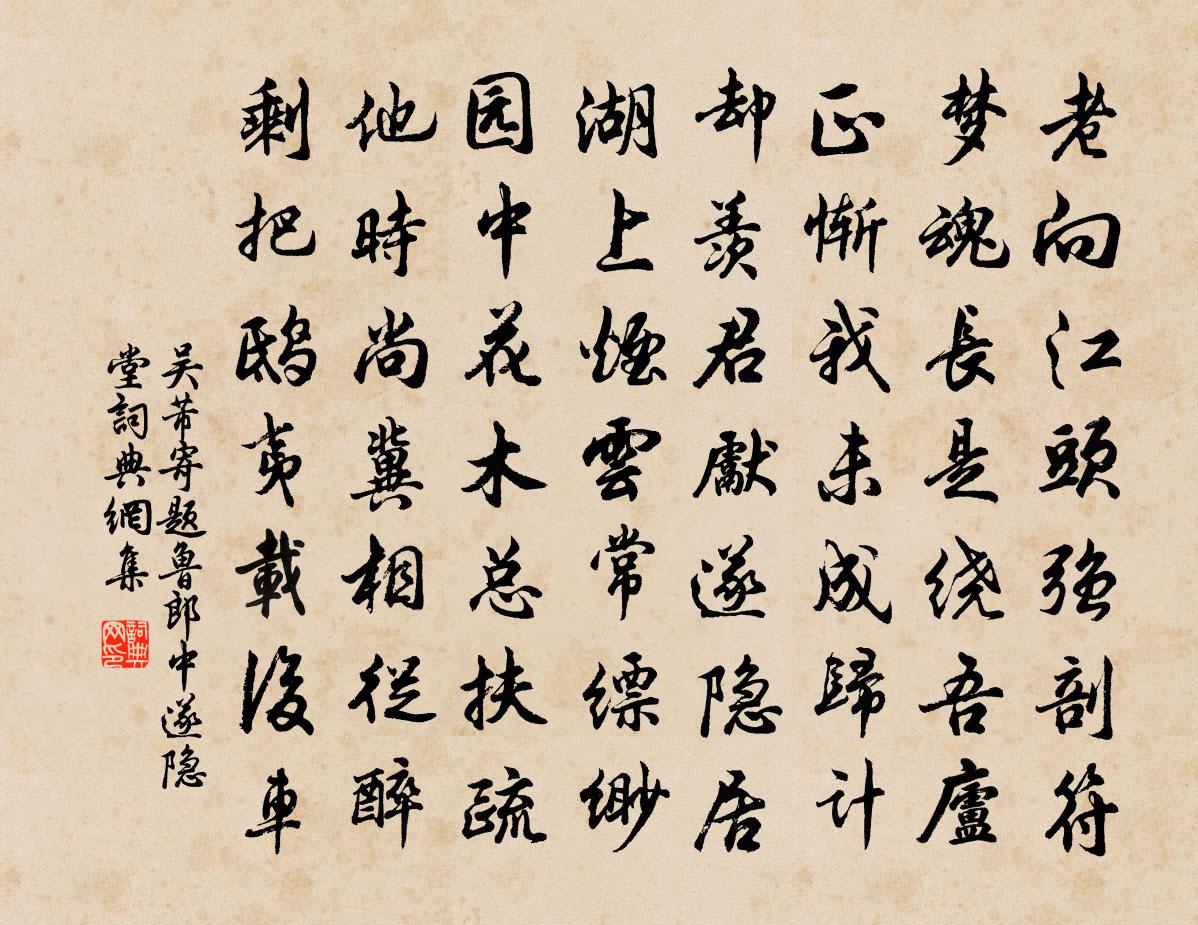 老向江頭强剖符
梦魂長是绕吾廬
正慚我未成歸计
却羨君獻遂隐居
湖上煙雲常缥緲
园中花木总扶疏
他時尚冀相從醉
剩把鸱夷載後車
吴芾寄題魯郎中遂隐
堂詞典網集
詞典
网印